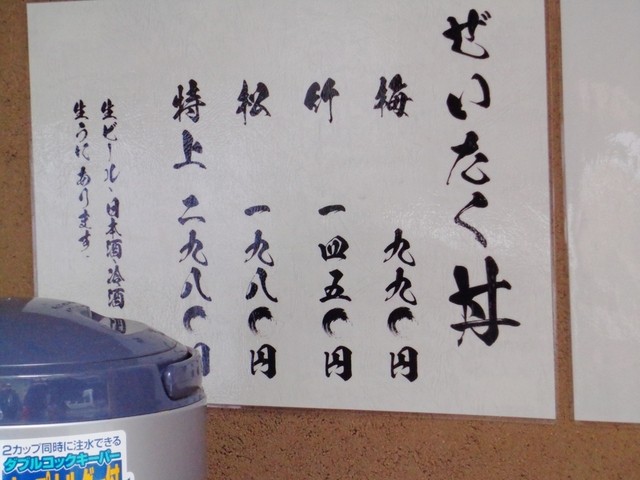 ぜいたく丼
梅 九九〇円
竹 一四五〇円
松 一九八〇円
特上 二九八〇円
生ビール、日本酒、冷酒
生うにあります。
2カップ同時に注水できる
ダブルコックキーパー